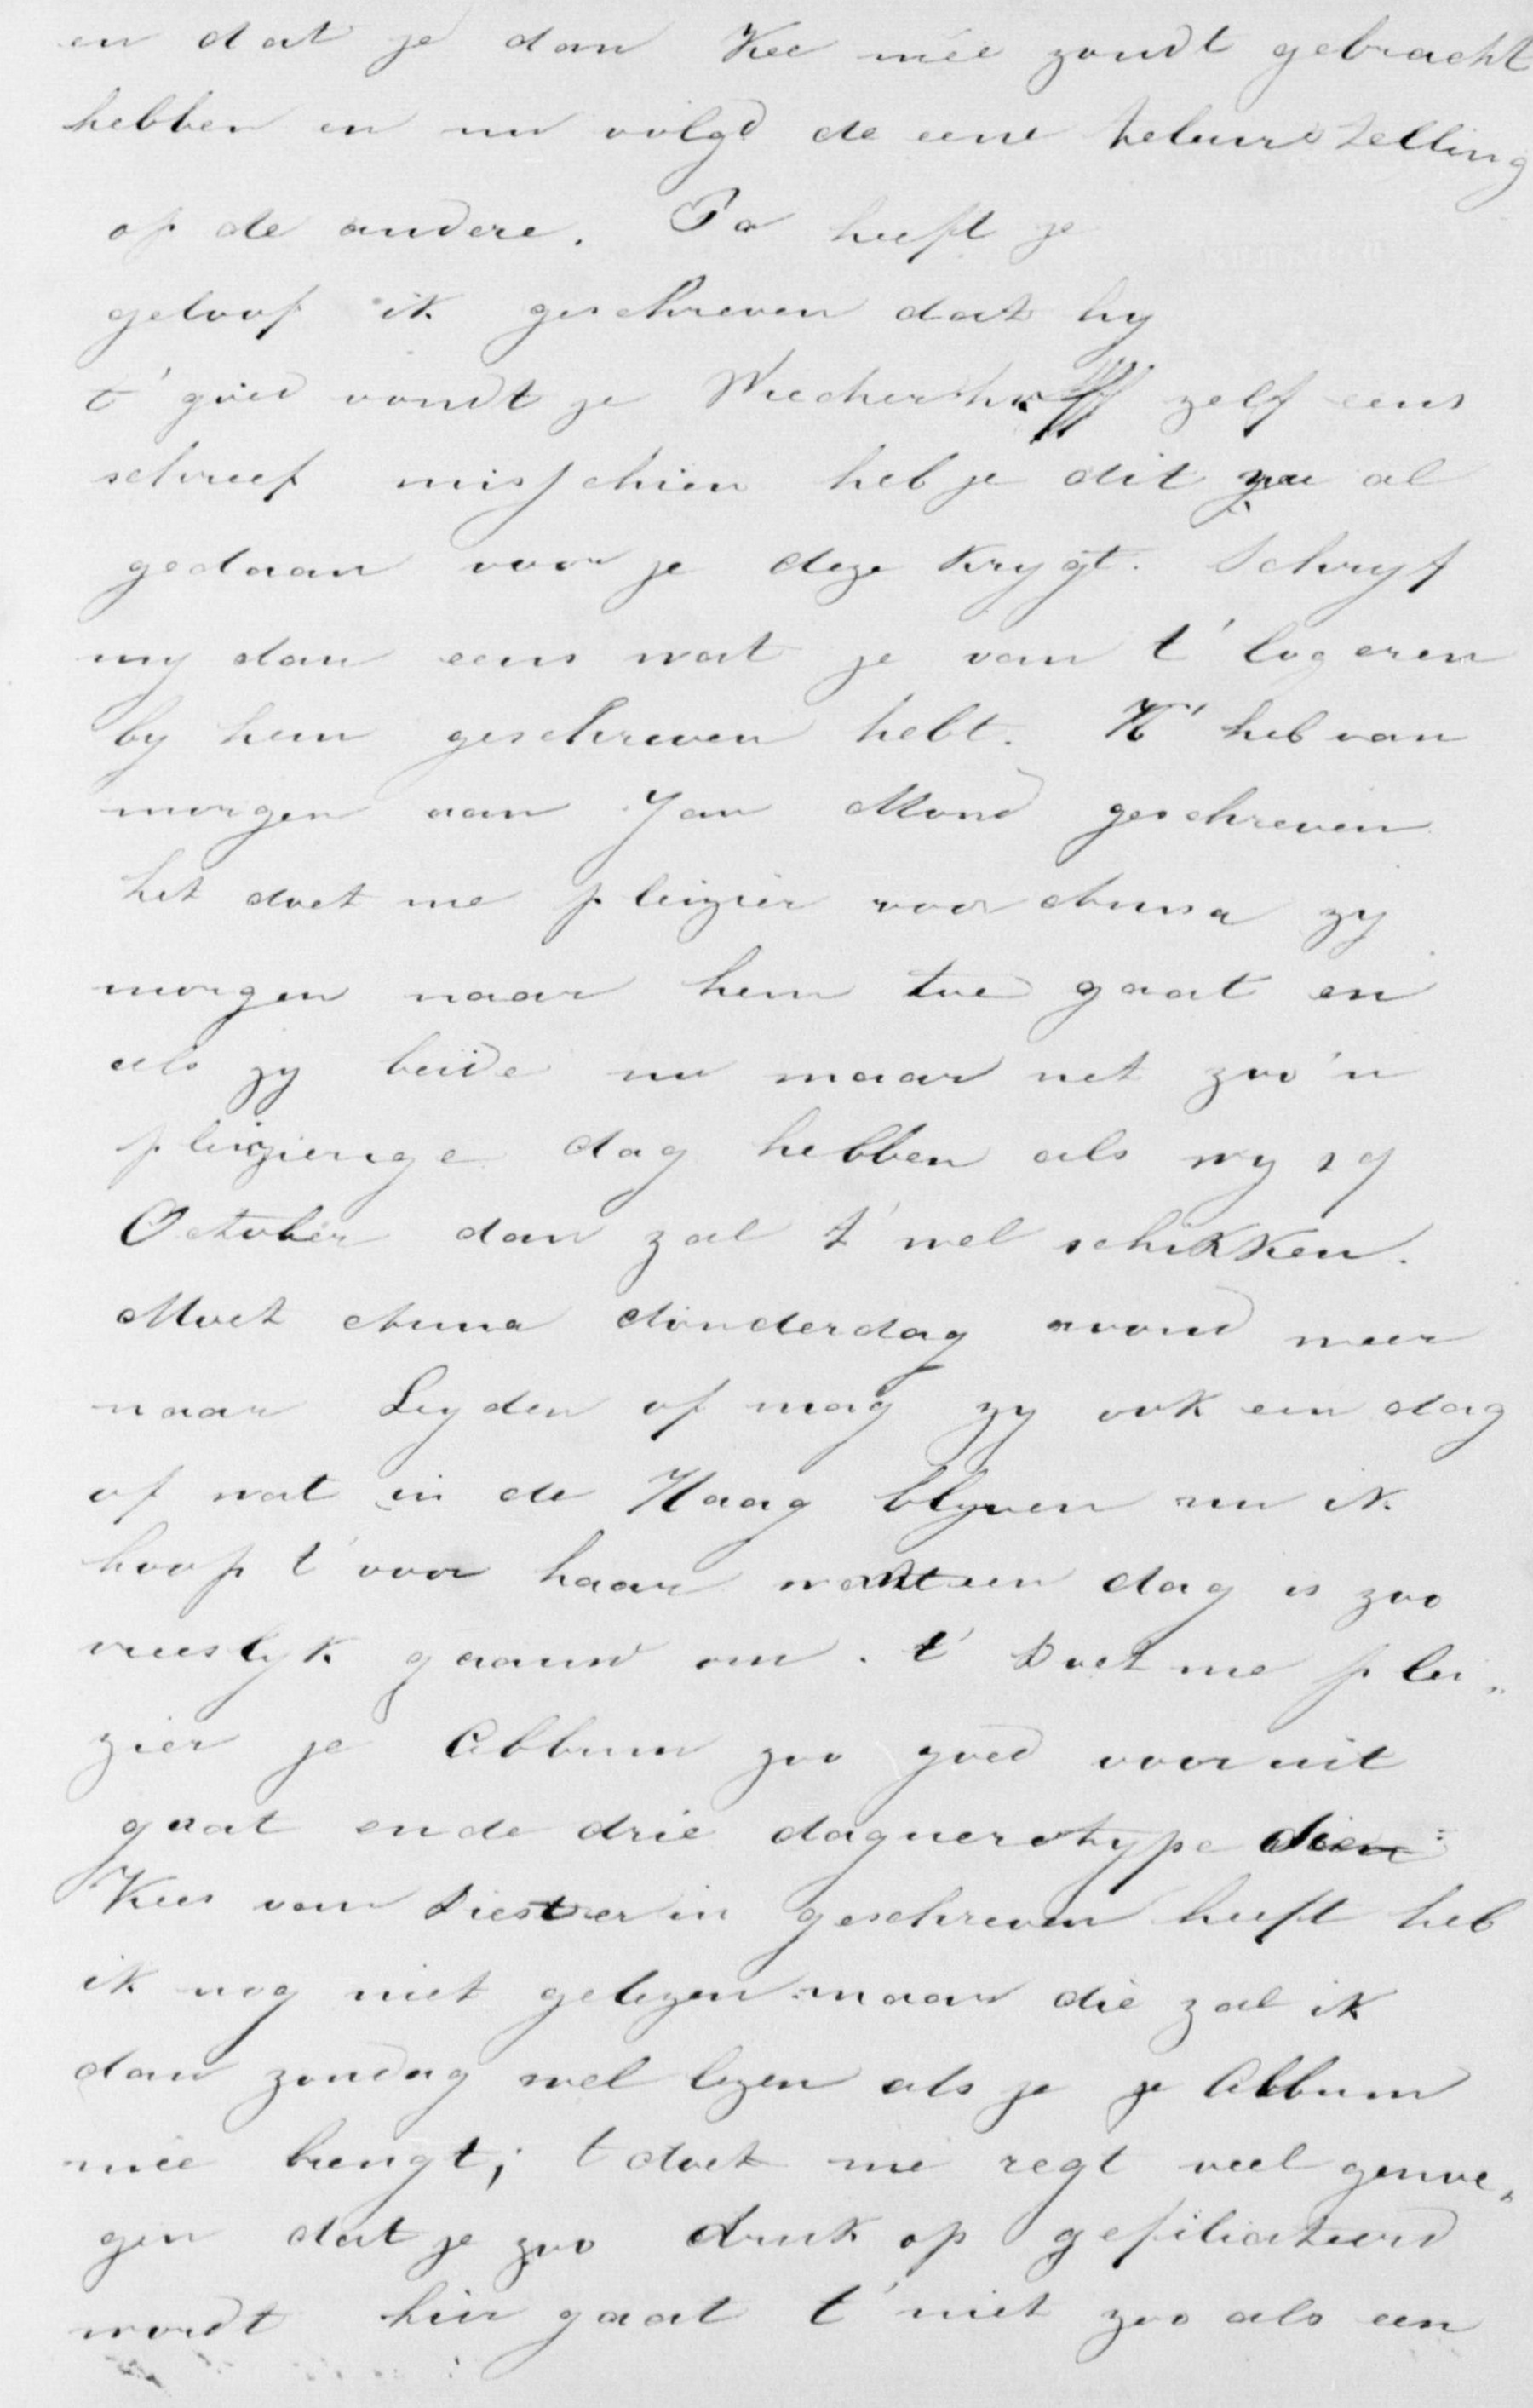 en dat je dan Kee mée zoudt gebracht
hebben en nu volgd de eene teleurstelling
op de andere. Pa heeft je
geloof ik geschreven dat hy
t' goed vondt je zelf eens
schreef misschien heb je dit nu al
gedaan voor je deze krygt. Schryf
my dan eens wat je van t' logeren
by hem geschreven hebt. K' heb van
morgen aan Jan Mond geschreven
het doet me pleizier voor Anna zy
morgen naar hem toe gaat en
als zy beide nu maar net zoo'n
pleizierige dag hebben als wy 29
October dan zal t' wel schikken.
Moet Anna donderdag avond weer
naar Leyden of mag zy ook een dag
of wat in de Haag blyven nu ik
hoop t' voor haar want een dag is zoo
vreeslyk gaauw om. t' Doet me plei„
zier je Album zoo goed vooruit
gaat en de drie daguerotype die
Kees van in geschreven heeft heb
ik nog niet gelezen maar die zal ik
dan zondag wel lezen als je je Album
mée brengt; t doet me regt veel genoe„
gen dat je zoo druk op gefiliciteerd
wordt hier gaat t' niet zoo als een